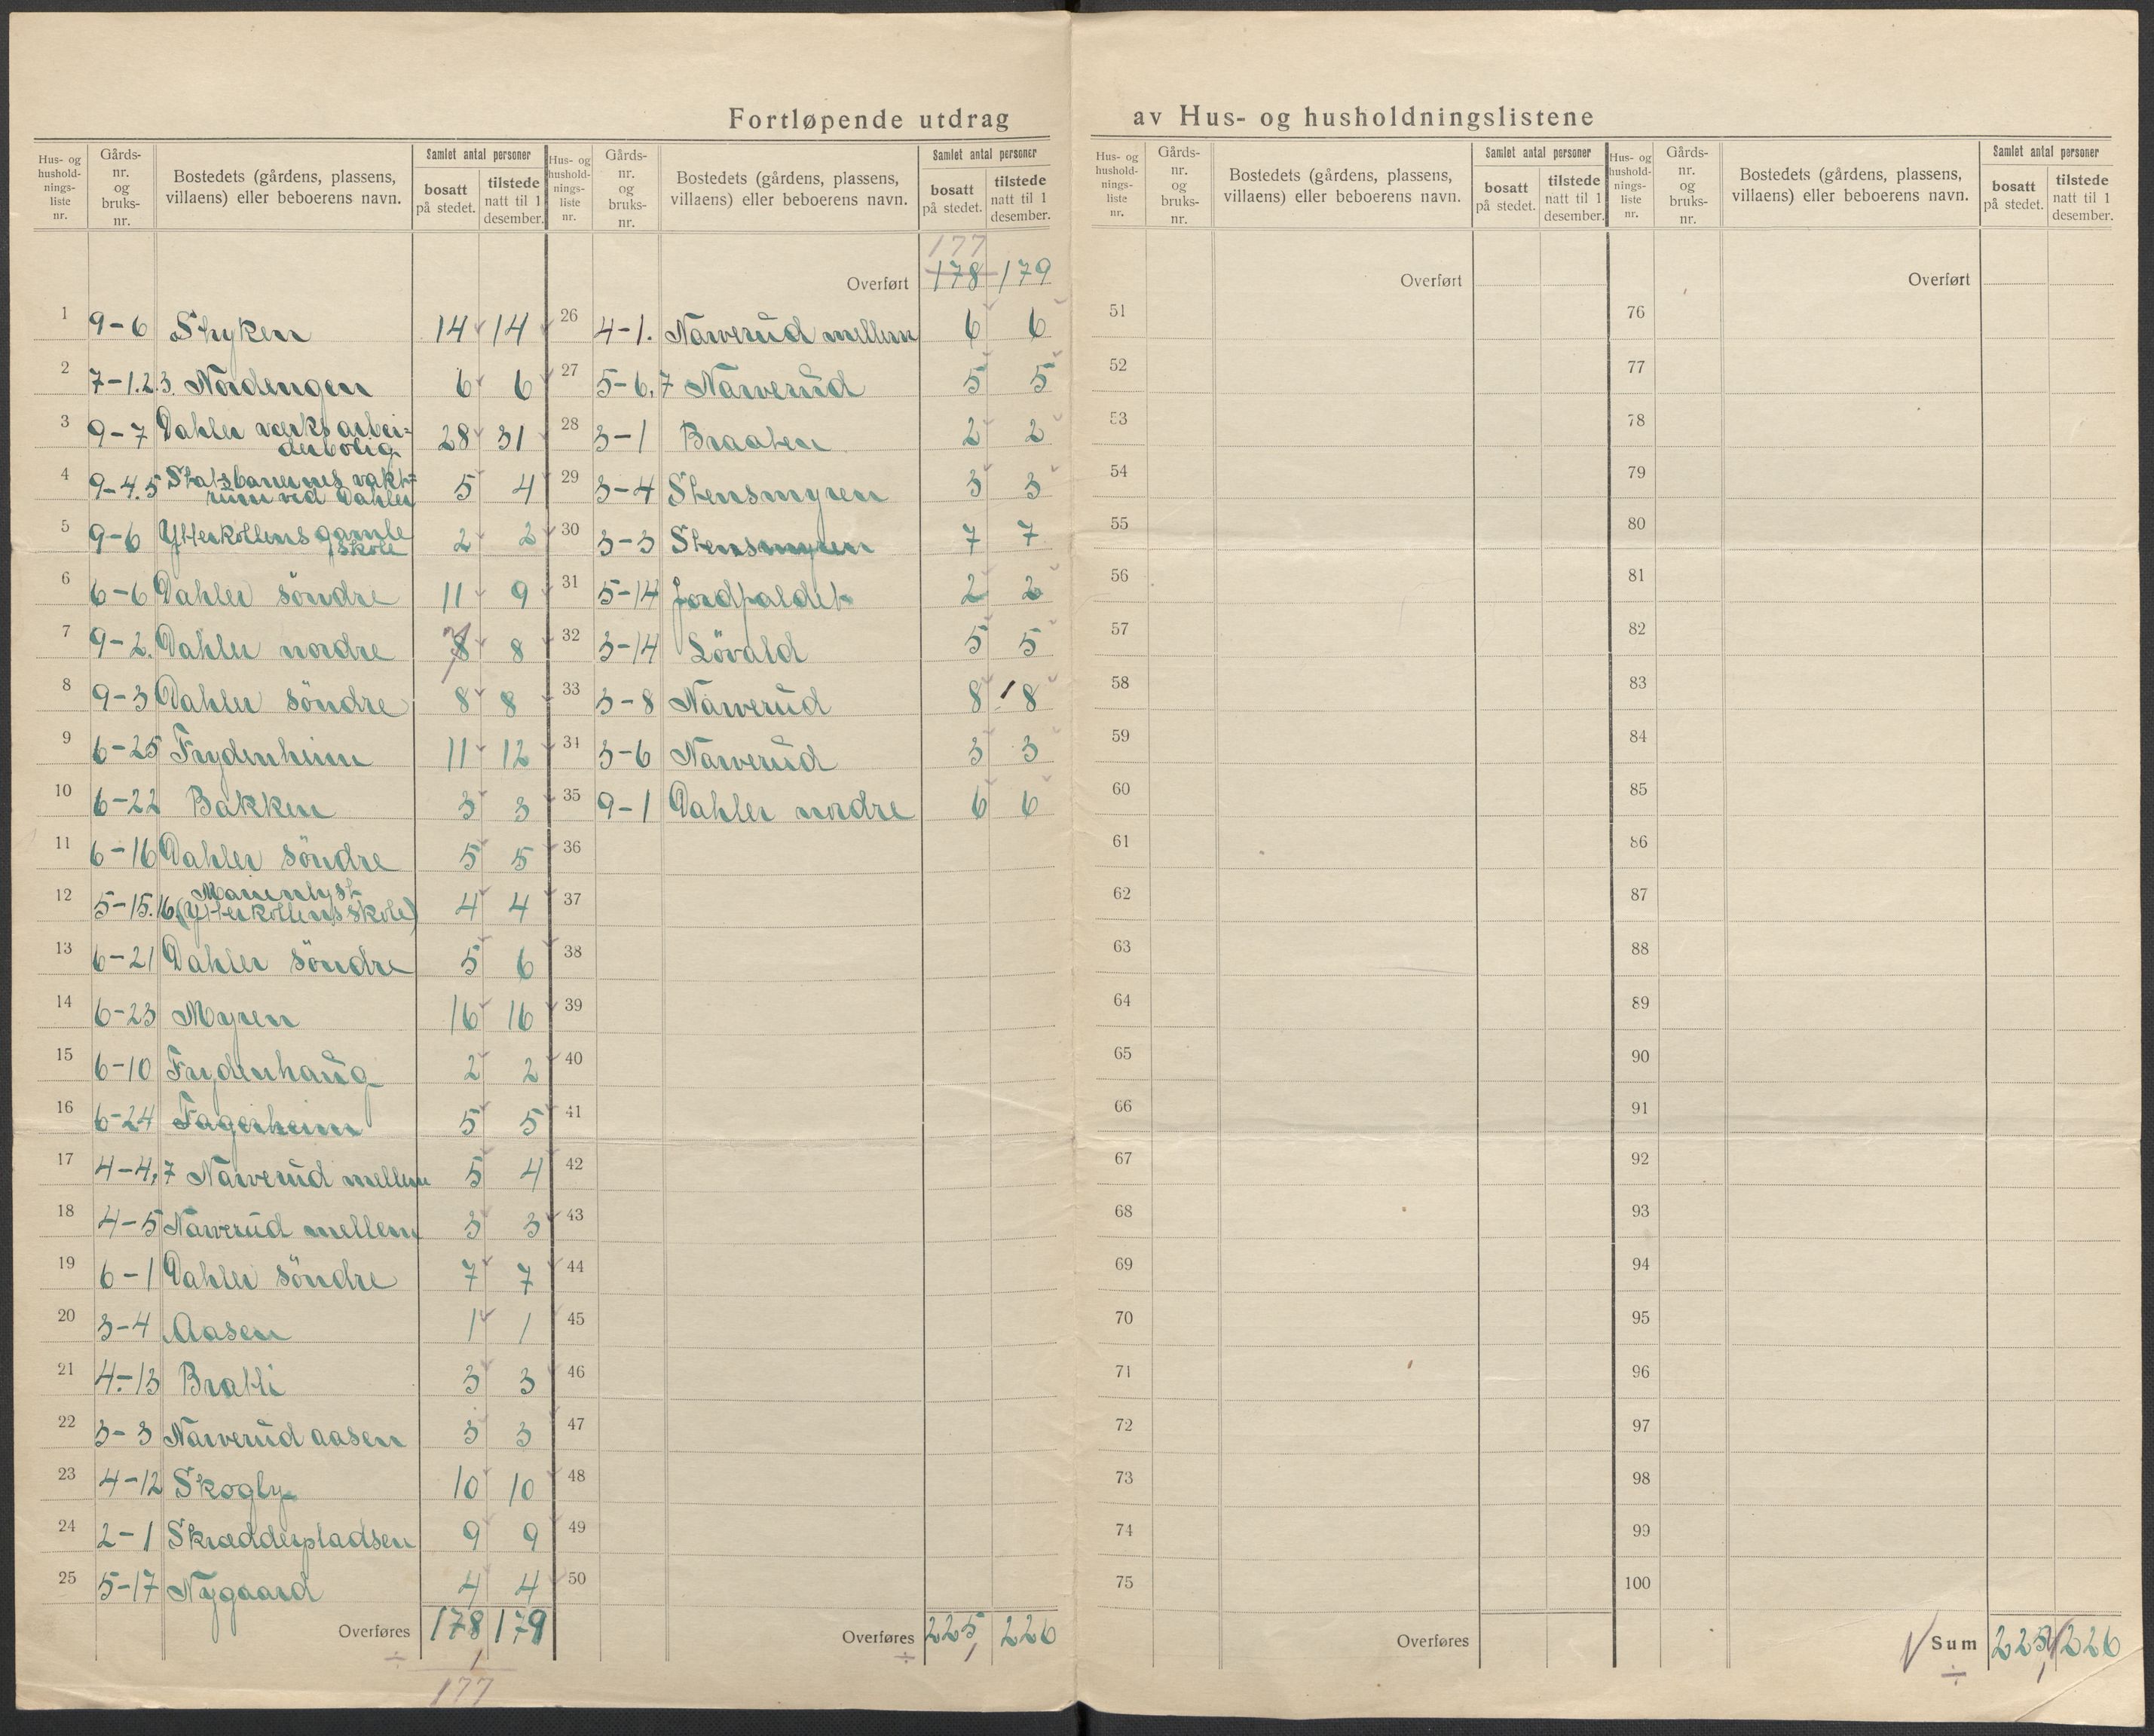 Fortløpende utdrag av Hus- og husholdningslistene
Hus- og hushold-nings-liste nr. Gårds-nr. og bruks-nr. Bostedets (gårdens, plassens, villaens) eller beboerens navn. Samlet antal personer bosatt på stedet. tilstede natt til 1 desember.
1 9-6 Stryken 14 14
2 7-1.2.3. Nordengen 6 6
3 9-7 Dahler verks arbei-
derbolig 28 31
4 9-4.5 Statsbanernes vakt-
rum ved Dahler 5 4
5 9-6 Ytterkollens gamle
skole 2 2
6 6-6 Dahler söndre 11 9
7 9-2. Dahler nordre 8 7 8
8 9-3 Dahler söndre 8 8
9 6-25 Frydenheim 11 12
10 6-22 Bakken 3 3
11 6-16 Dahler söndre 5 5
12 5-15.16 Marienlyst
(Ytterkollens skole) 4 4
13 6-21 Dahler söndre 5 6
14 6-23 Myren 16 16
15 6-10 Frydenhaug 2 2
16 6-24 Fagerheim 5 5
17 4-4,7 Narverud mellem 5 4
18 4-5 Narverud mellem 3 3
19 6-1 Dahler söndre 7 7
20 3-4 Aasen 1 1
21 4-13 Bratli 3 3
22 3-3 Narverud aasen 3 3
23 4-12 Skogly 10 10
24 2-1 Skrædderpladsen 9 9
25 5-17 Nygaard 4 4
Overføres 178 179
÷ 1
177
Hus- og hushold-nings-liste nr. Gårds-nr. og bruks-nr. Bostedets (gårdens, plassens, villaens) eller beboerens navn. Samlet antal personer bosatt på stedet. tilstede natt til 1 desember.
177
Overført 178 179
26 4-1. Narverud mellem 6 6
27 5-6,7 Narverud 5 5
28 3-1 Braaten 2 2
29 3-4 Stensmyren 3 3
30 3-3 Stensmyren 7 7
31 5-14 Jordfaldet 2 2
32 3-14 Lövald 5 5
33 3-8 Narverud 8 8
34 3-6 Narverud 3 3
35 9-1 Dahler nordre 6 6
36
37
38
39
40
41
42
43
44
45
46
47
48
49
50
Overføres 225 226
÷ 1
Hus- og hushold-nings-liste nr. Gårds-nr. og bruks-nr. Bostedets (gårdens, plassens, villaens) eller beboerens navn. Samlet antal personer bosatt på stedet. tilstede natt til 1 desember.
Overført
51
52
53
54
55
56
57
58
59
60
61
62
63
64
65
66
67
68
69
70
71
72
73
74
75
Overføres
Hus- og hushold-nings-liste nr. Gårds-nr. og bruks-nr. Bostedets (gårdens, plassens, villaens) eller beboerens navn. Samlet antal personer bosatt på stedet. tilstede natt til 1 desember.
Overført
76
77
78
79
80
81
82
83
84
85
86
87
88
89
90
91
92
93
94
95
96
97
98
99
100
Sum 225 226
÷ 1